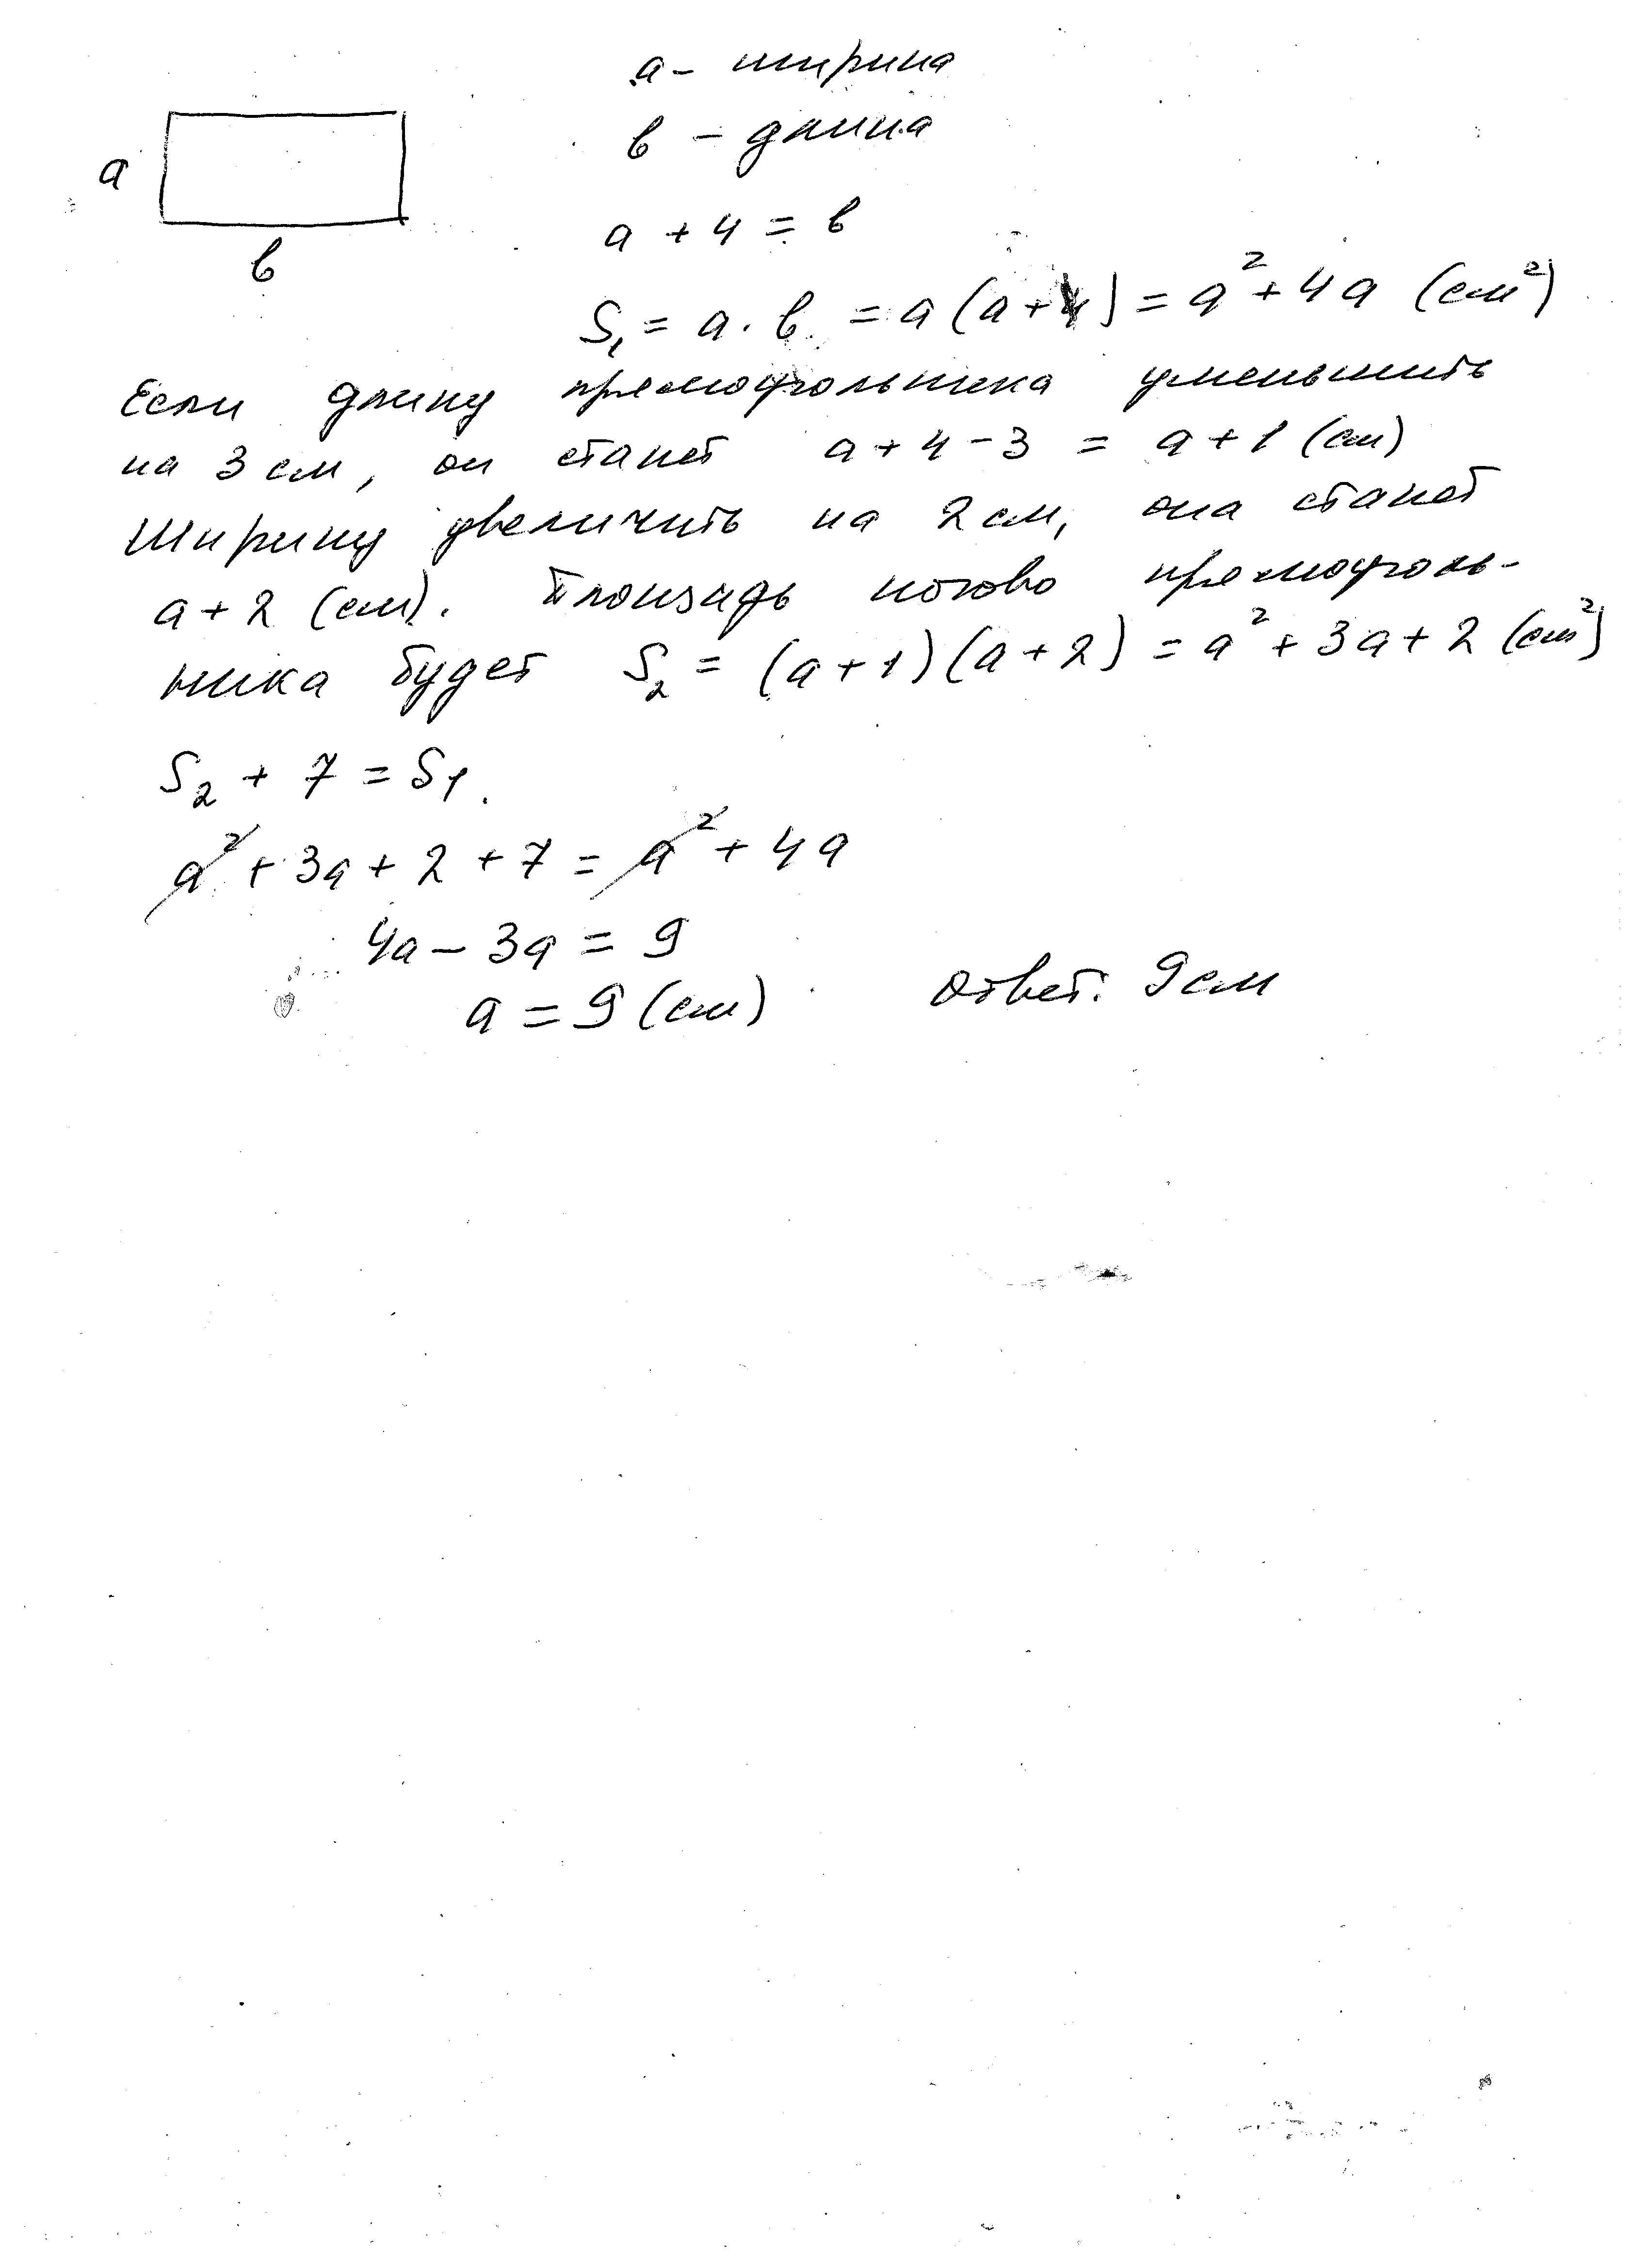 a - ширина
b - длина
a
b
a + 4 = b
S₁ = a · b = a (a+4) = a² + 4a (см²)
Если длину прямоугольника уменьшить
на 3 см, он станет a + 4 - 3 = a + 1 (см)
Ширину увеличить на 2 см, она станет
a + 2 (см). Площадь нового прямоуголь-
ника будет S₂ = (a + 1) (a + 2) = a² + 3a + 2 (см²)
S₂ + 7 = S₁.
a² + 3a + 2 + 7 = a² + 4a
4a - 3a = 9
a = 9 (см) Ответ. 9 см